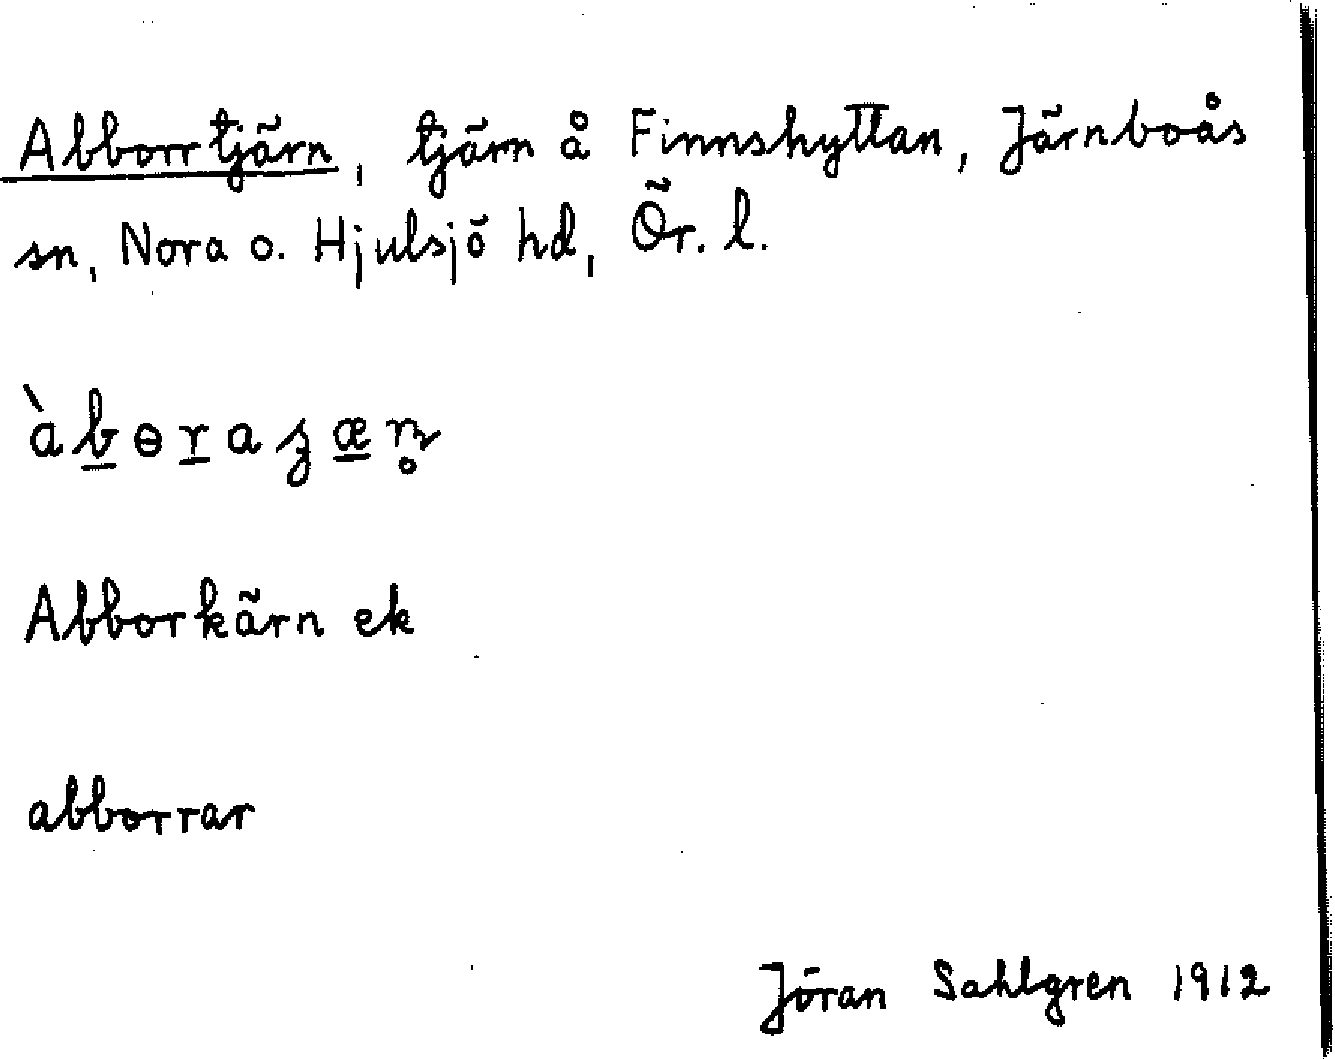 Abborrtjärn, tjärn å Finnshyttan, Järnboås
sn, Nora o. Hjulsjö hd, Ör. l.
àb̲ɵr̲aʒæ̲n̥
Abborkärn ek
abborrar
Jöran Sahlgren 1912